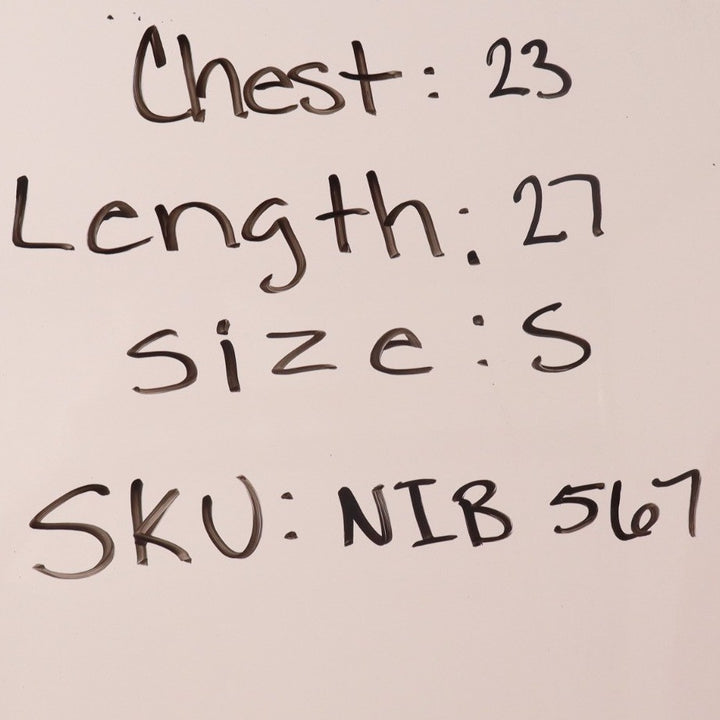 Chest: 23
Length: 27
Size: S
SKU: NIB 567